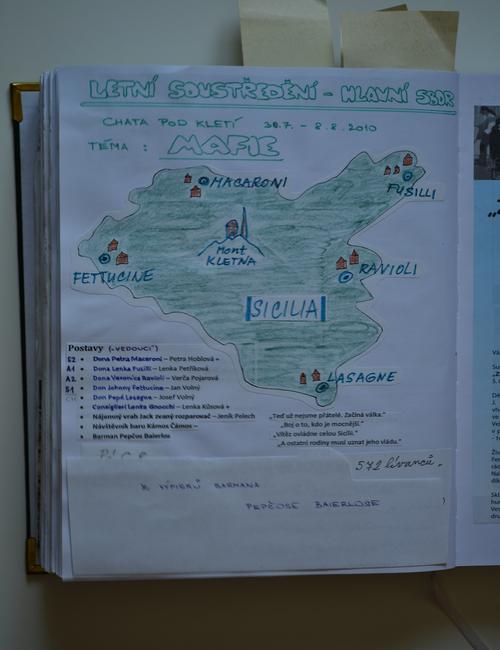 LETNÍ SOUSTŘEDĚNÍ - HLAVNÍ SBOR
CHATA POD KLETÍ 30.7. - 8.8.2010
TÉMA : MAFIE
MACARONI
FUSILLI
Mont
KLETNA
FETTUCINE
RAVIOLI
SICILIA
LASAGNE
Postavy („VEDOUCÍ")
S2 • Dona Petra Macaroni – Petra Hoblová +
A1 • Dona Lenka Fusilli – Lenka Petříková
A2 • Dona Veronica Ravioli – Verča Pojarová
S1 • Don Johnny Fettucine – Jan Volný
• Don Pepé Lasagne – Josef Volný
• Consiglieri Lenka Gnocchi – Lenka Kůsová +
• Nájemný vrah Jack zvaný rozparovač – Jeník Pelech
• Návštěvník baru Kámos Čámos –
• Barman Pepčus Baierlos
„Teď už nejsme přátelé. Začíná válka."
„Boj o to, kdo je mocnější."
„Vítěz ovládne celou Sicílii."
„A ostatní rodiny musí uznat jeho vládu."
572 lívanců.
BARMANA